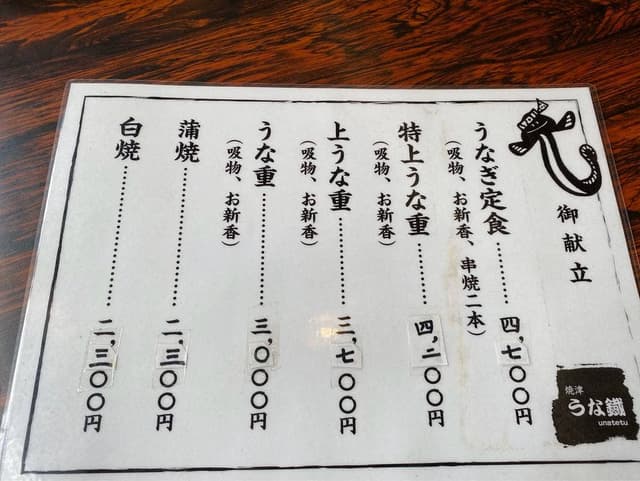 御献立
うなぎ定食………四、七〇〇円
(吸物、お新香、串焼二本)
特上うな重………四、二〇〇円
(吸物、お新香)
上うな重………三、七〇〇円
(吸物、お新香)
うな重………三、〇〇〇円
(吸物、お新香)
蒲焼………二、三〇〇円
白焼………二、三〇〇円
焼津
うな鐵
unatetu